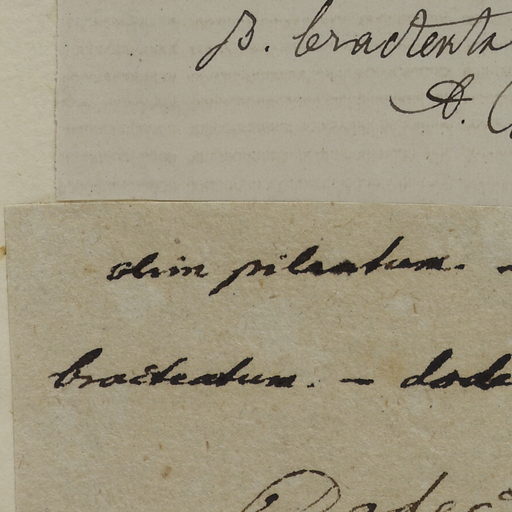 β. bracteata
A.
olim pileatum. –
bracteatum. – dode
Dodec